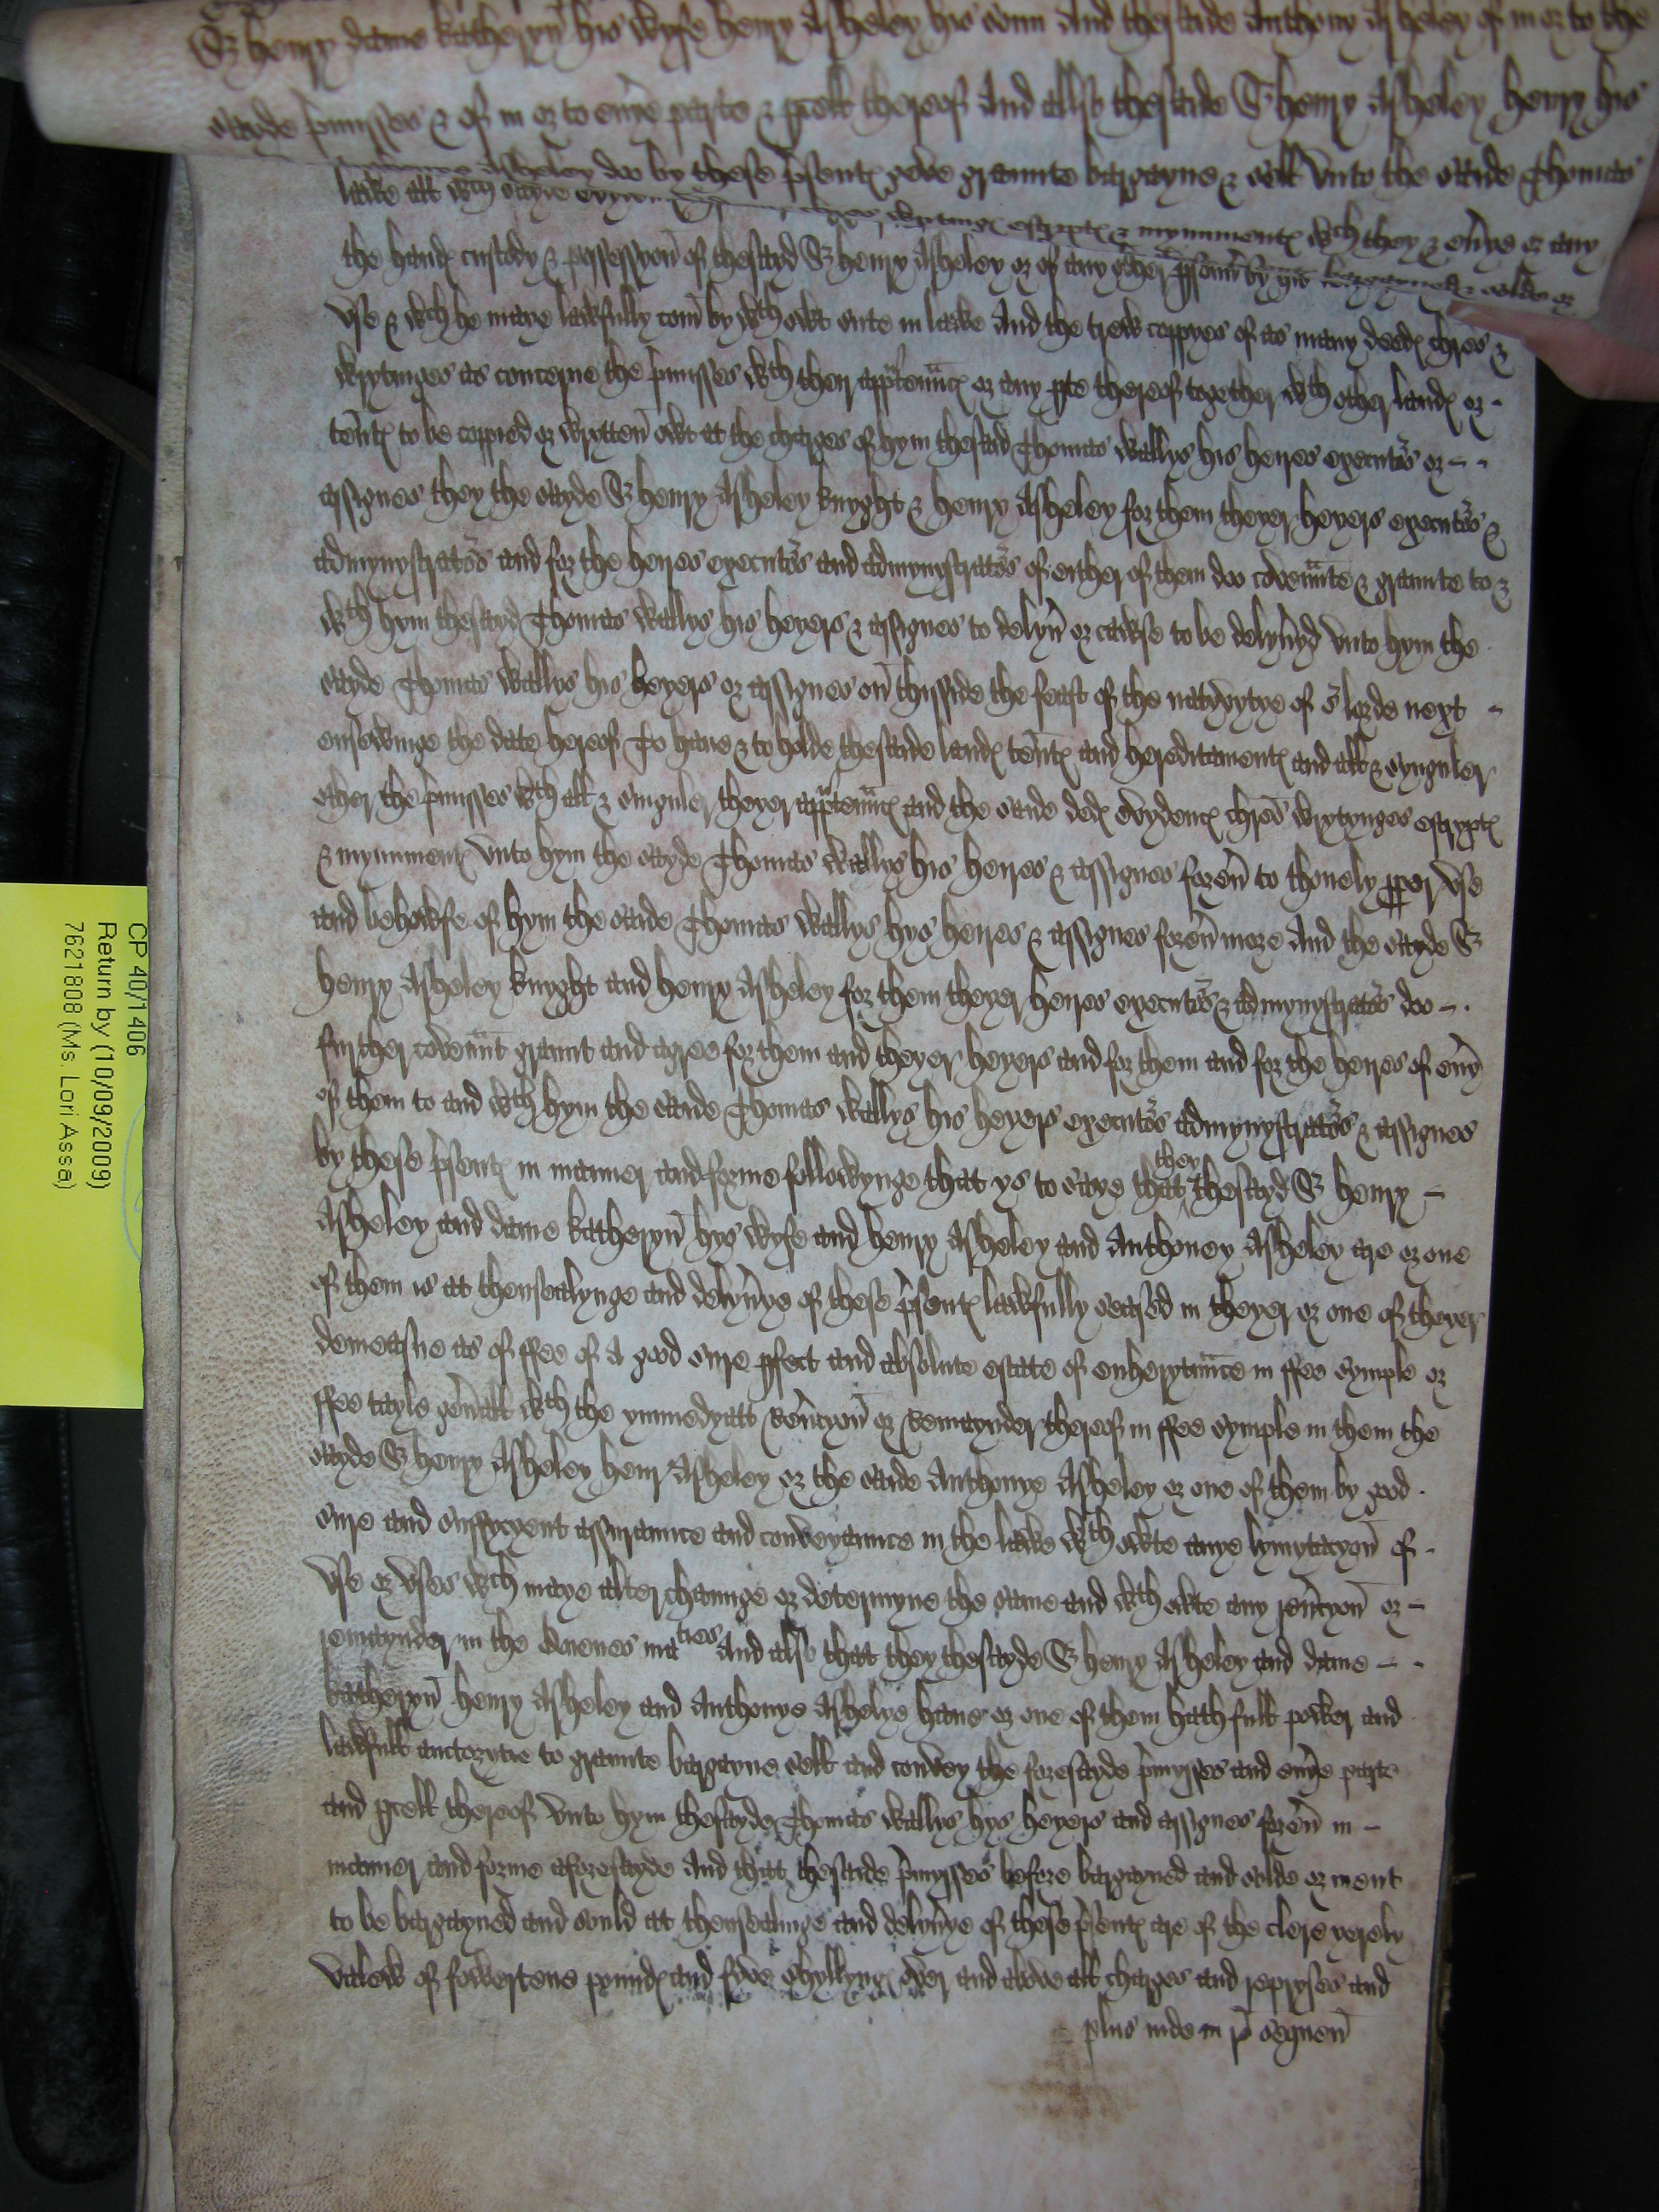 Sr henry dame katheryn his wyfe henry Assheley his sonn And thesaide Anthony Assheley of in or to the
sayde pmisses & of in or to euye parte & pcell thereof And allso thesaide Sr henry Assheley henry his
Assheley doo by these psents geve graunte bargayne & sell vnto the saide Thomas
lawe all wch wrytings escrypts & mynuments wch they & or any
the hands custody & possessyon of thesaid Sr henry Assheley or of any other pson by his
vse & wch he maye lawfully com by wthowt sute in lawe And the trew coppyes of as many deeds chres &
wrytinges as concerne the pmisses wth ther apptennncs or any pte thereof together wth other lands or -
tents to be coppied or wrytten owt at the charges of hym thesaid Thomas wallys his heires executors or - -
assignes they the sayde Sr henry Assheley knyght & henry Assheley for them theyer heyers executors &
admynystrators and for the heires executors and admynystrators of either of them doo covennte & graunte to &
wth hym thesayd Thomas wallys his heyers & assignes to delyu or cawse to be delyuyd vnto hym the
sayde Thomas wallys his heyers or assignes on thisside the feast of the natyvytye of or lorde next -
ensewinge the date hereof To haue & to holde thesaide lands tents and hereditaments and all & synguler
other the pmisses wth all & singuler theyer apptennncs and the saide deds evydencs chres wrytynges escrypts
& mynuments vnto hym the sayde Thomas wallys his heires & assignes foreu to thonely pper vse
and behowfe of hym the saide Thomas wallys hys heires & assignes foreu more And the sayde Sr
henry Assheley knyght and henry Assheley for them theyer heires executors & admynystrators doo - .
further covennt graunt and agree for them and theyer heyers and for them and for the heires of euy
of them to and wth hym the saide Thomas wallys his heyers executors admynystrators & assignes
by these psents in manner and forme followynge that ys to saye that they thesayd Sr henry -
Assheley and dame katheryn hys wyfe and henry Assheley and Anthoney Assheley are or one
of them is at thensealynge and delyuye of these psents lawfully seased in theyer or one of theyer
demeasne as of ffee of a good sure pfect and absolute estate of enherytaunce in ffee symple or
ffee tayle genall wth the ymmedyatt reucyon or remaynder thereof in ffee symple in them the
sayde Sr henry Assheley henr Assheley or the saide Anthonye Assheley or one of them by good .
sure and suffycyent assuraunce and conveyaunce in the lawe wthowte anye lymytacyon of -
vse or vses wch maye alter chaunge or determyne the same and wthowte any reucyon or -
remaynder in the Queenes maties And also that they thesayde Sr henry Assheley and dame - -
katheryn henry Assheley and Anthonye Assheley haue or one of them hath full power and
lawfull auctorytie to graunte bargayne sell and convey the foresayde pmysses and euye parte
and pcell thereof vnto hym thesayde Thomas wallys hys heyers and assignes foreu in -
manner and forme aforesayde And that thesaide pmysses before bargayned and solde or ment
to be bargayned and sould at thensealinge and delyuye of these psents are of the clere yerely
valew of fowertene pounds and fyve shyllyngs over and above all charges and repryses and
plus inde in ro sequen
CP 40/1406
Return by (10/09/2009)
7621808 (Ms. Lori Assa)